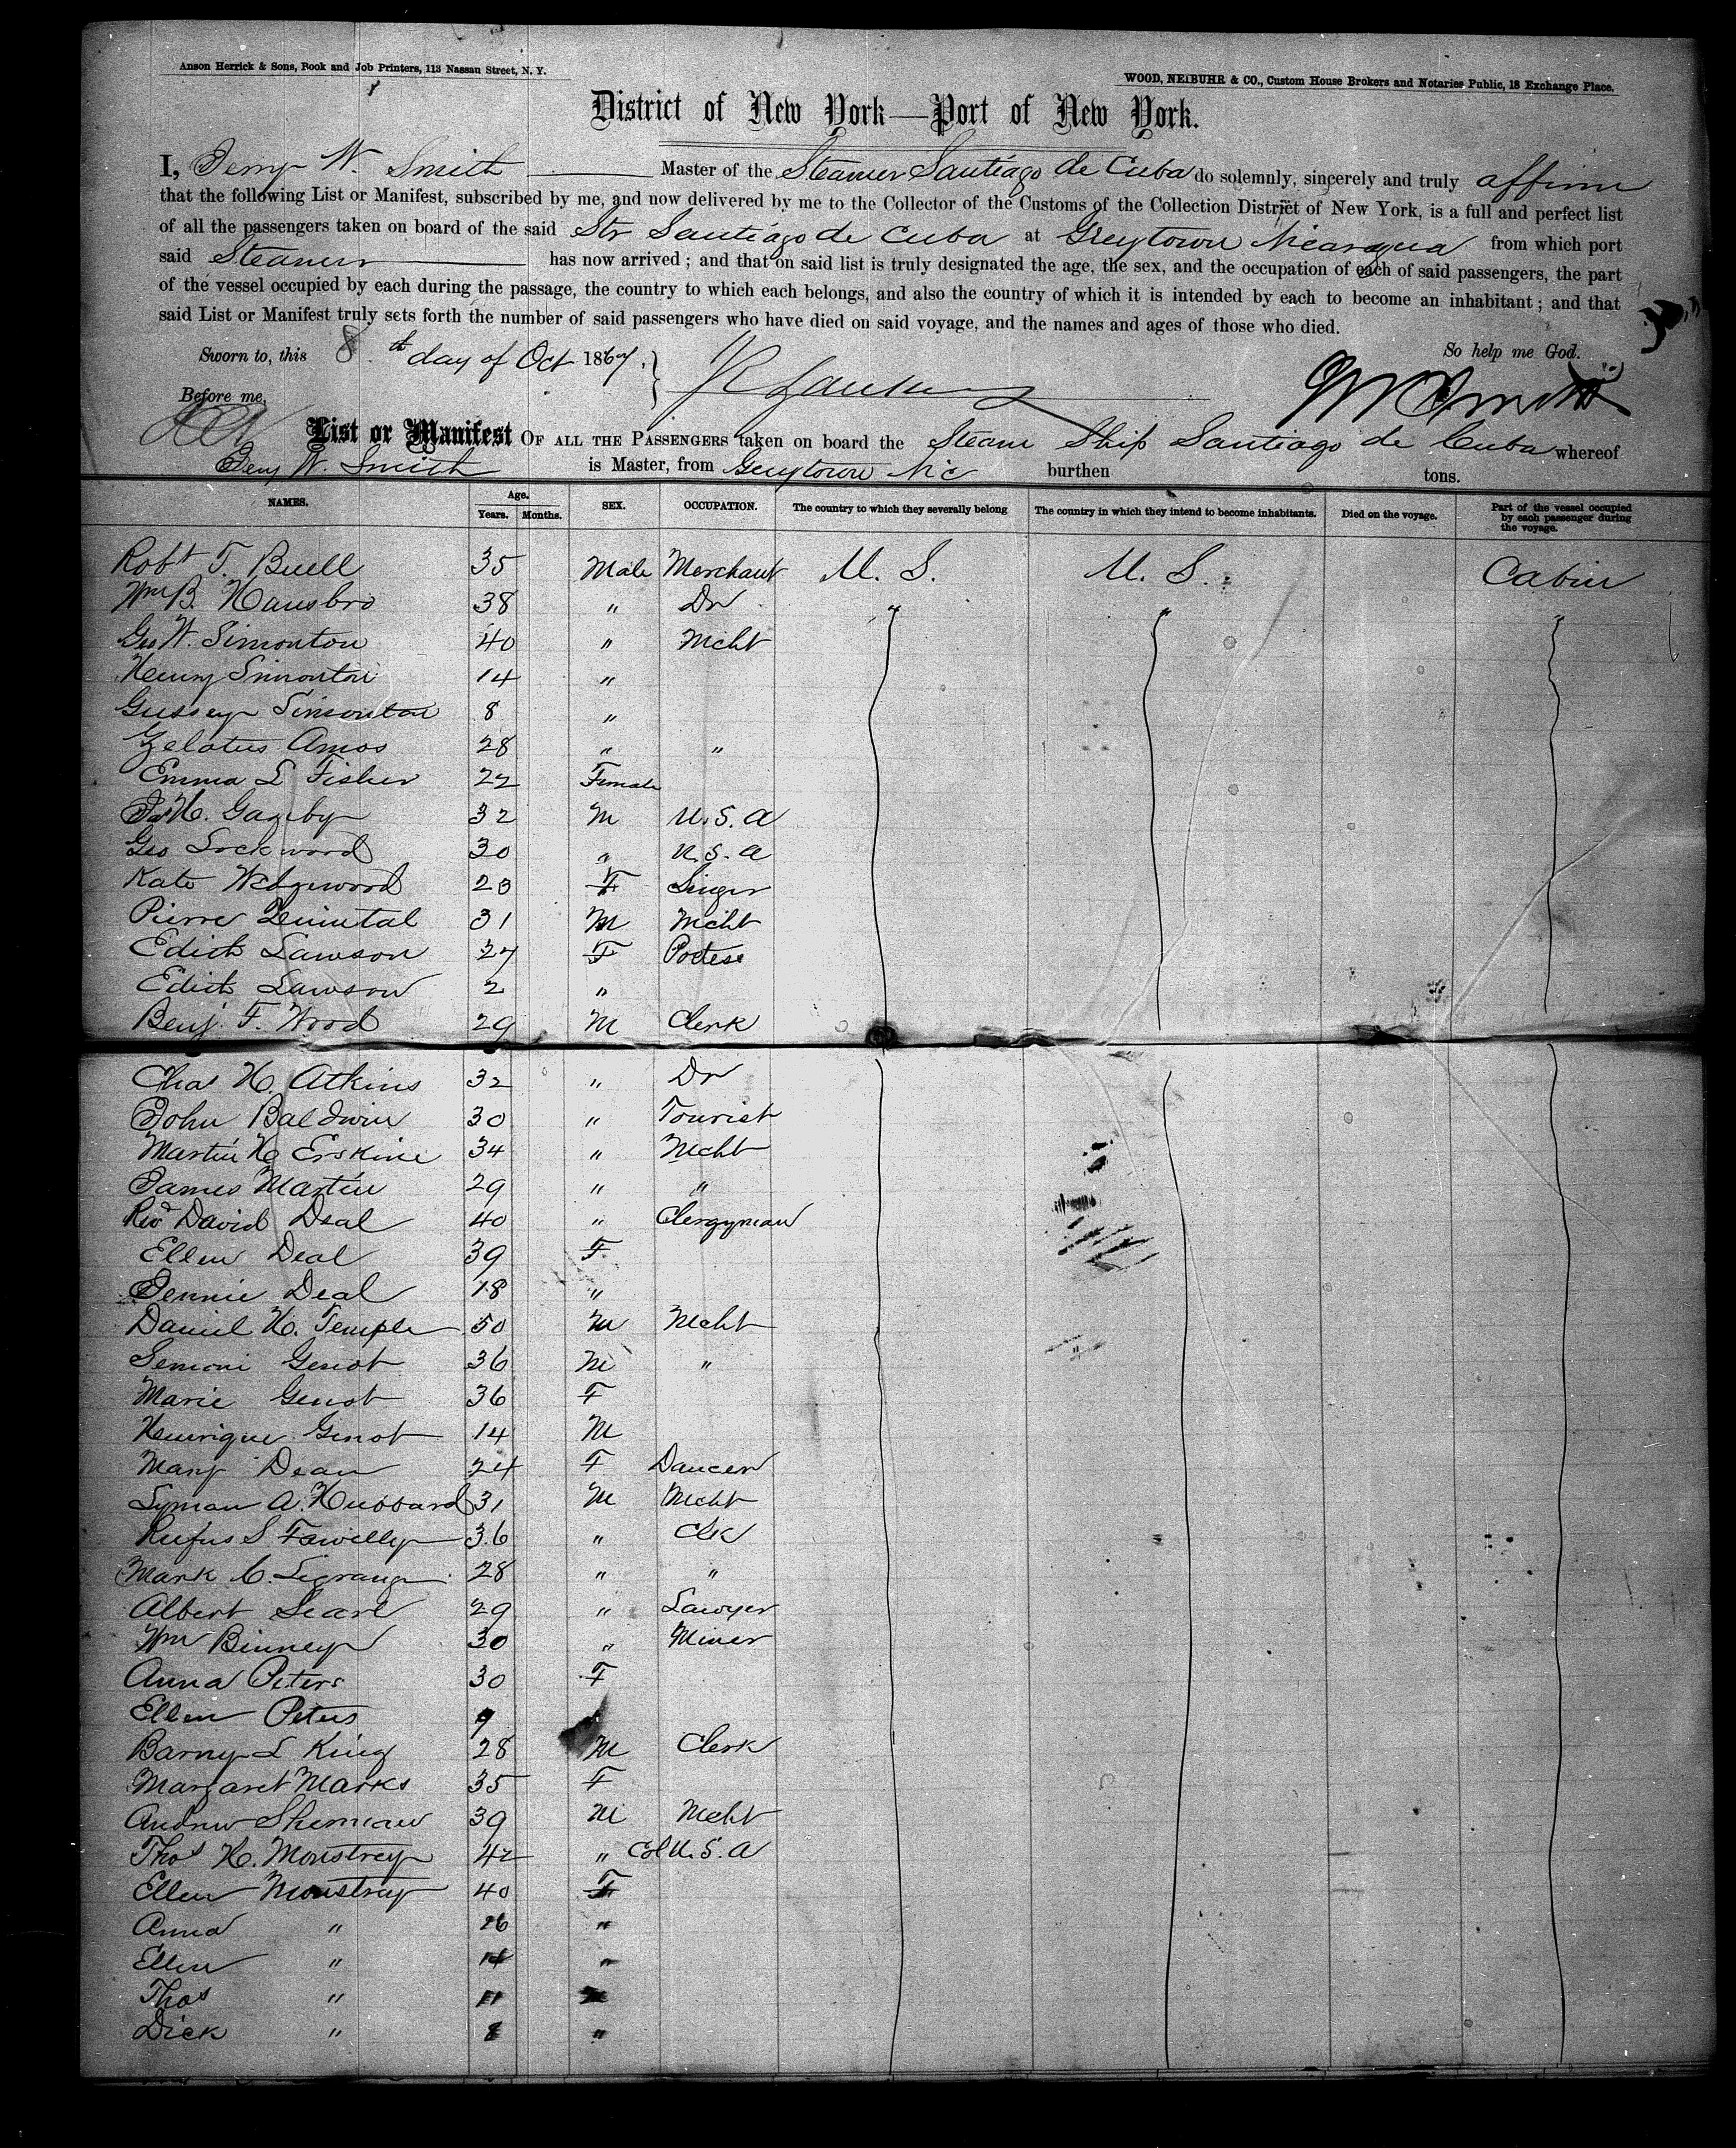 Anson Herrick & Sons, Book and Job Printers, 113 Nassau Street, N. Y.
WOOD, NEIBUHR & CO., Custom House Brokers and Notaries Public, 18 Exchange Place.
District of New York—Port of New York.
I, Jerry W. Smith Master of the Steamer Santiago de Cuba do solemnly, sincerely and truly affirm
that the following List or Manifest, subscribed by me, and now delivered by me to the Collector of the Customs of the Collection District of New York, is a full and perfect list
of all the passengers taken on board of the said Str Santiago de Cuba at Greytown Nicaragua from which port
said Steamer has now arrived; and that on said list is truly designated the age, the sex, and the occupation of each of said passengers, the part
of the vessel occupied by each during the passage, the country to which each belongs, and also the country of which it is intended by each to become an inhabitant; and that
said List or Manifest truly sets forth the number of said passengers who have died on said voyage, and the names and ages of those who died.
Sworn to, this 8th day of Oct 1867. So help me God.
Before me,
List or Manifest OF ALL THE PASSENGERS taken on board the Steam Ship Santiago de Cuba whereof
Jerry W. Smith is Master, from Greytown Nic burthen tons.
NAMES. Age. Years. Months. SEX. OCCUPATION. The country to which they severally belong The country in which they intend to become inhabitants. Died on the voyage. Part of the vessel occupied by each passenger during the voyage.
Robt T. Buell 35 Male Merchant U. S. U. S. Cabin
Wm B. Hansbro 38 " Dr " " "
Geo W. Simonton 40 " Mcht
Henry Simonton 14 "
Gussey Simonton 8 "
Zelotus Amos 28 " "
Emma L Fisher 22 Female
Jas H. Gageby 32 M U.S.A
Geo Lockwood 30 " U.S.A
Kate Wedgewood 23 F Singer
Pierre Quintal 31 M Mcht
Edith Lawson 27 F Poetess
Edith Lawson 2 "
Benj. F. Wood 29 M Clerk
Chas H. Atkins 32 " Dr
John Baldwin 30 " Tourist
Martin H Erskine 34 " Mcht
James Martin 29 " "
Revd David Deal 40 " Clergyman
Ellen Deal 39 F
Jennie Deal 18 "
Daniel H. Temple 50 M Mcht
Genot 36 M "
Marie Genot 36 F
Henrique Genot 14 M
Mary Dean 24 F Dancer
Lyman A. Hubbard 31 M Mcht
Rufus S 36 " Clk
Mark C. Legrange 28 " "
Albert Searl 29 " Lawyer
Wm Binney 30 " Miner
Anna Peters 30 F
Ellen Peters 9
Barny L King 28 M Clerk
Margaret Marks 35 F
Andrew Sherman 39 M Mcht
Thos H. Monstrey 42 " Col U.S.A
Ellen Monstrey 40 F
Anna " 16 "
Ellen " 14 "
Thos " 11 M
Dick " 8 "